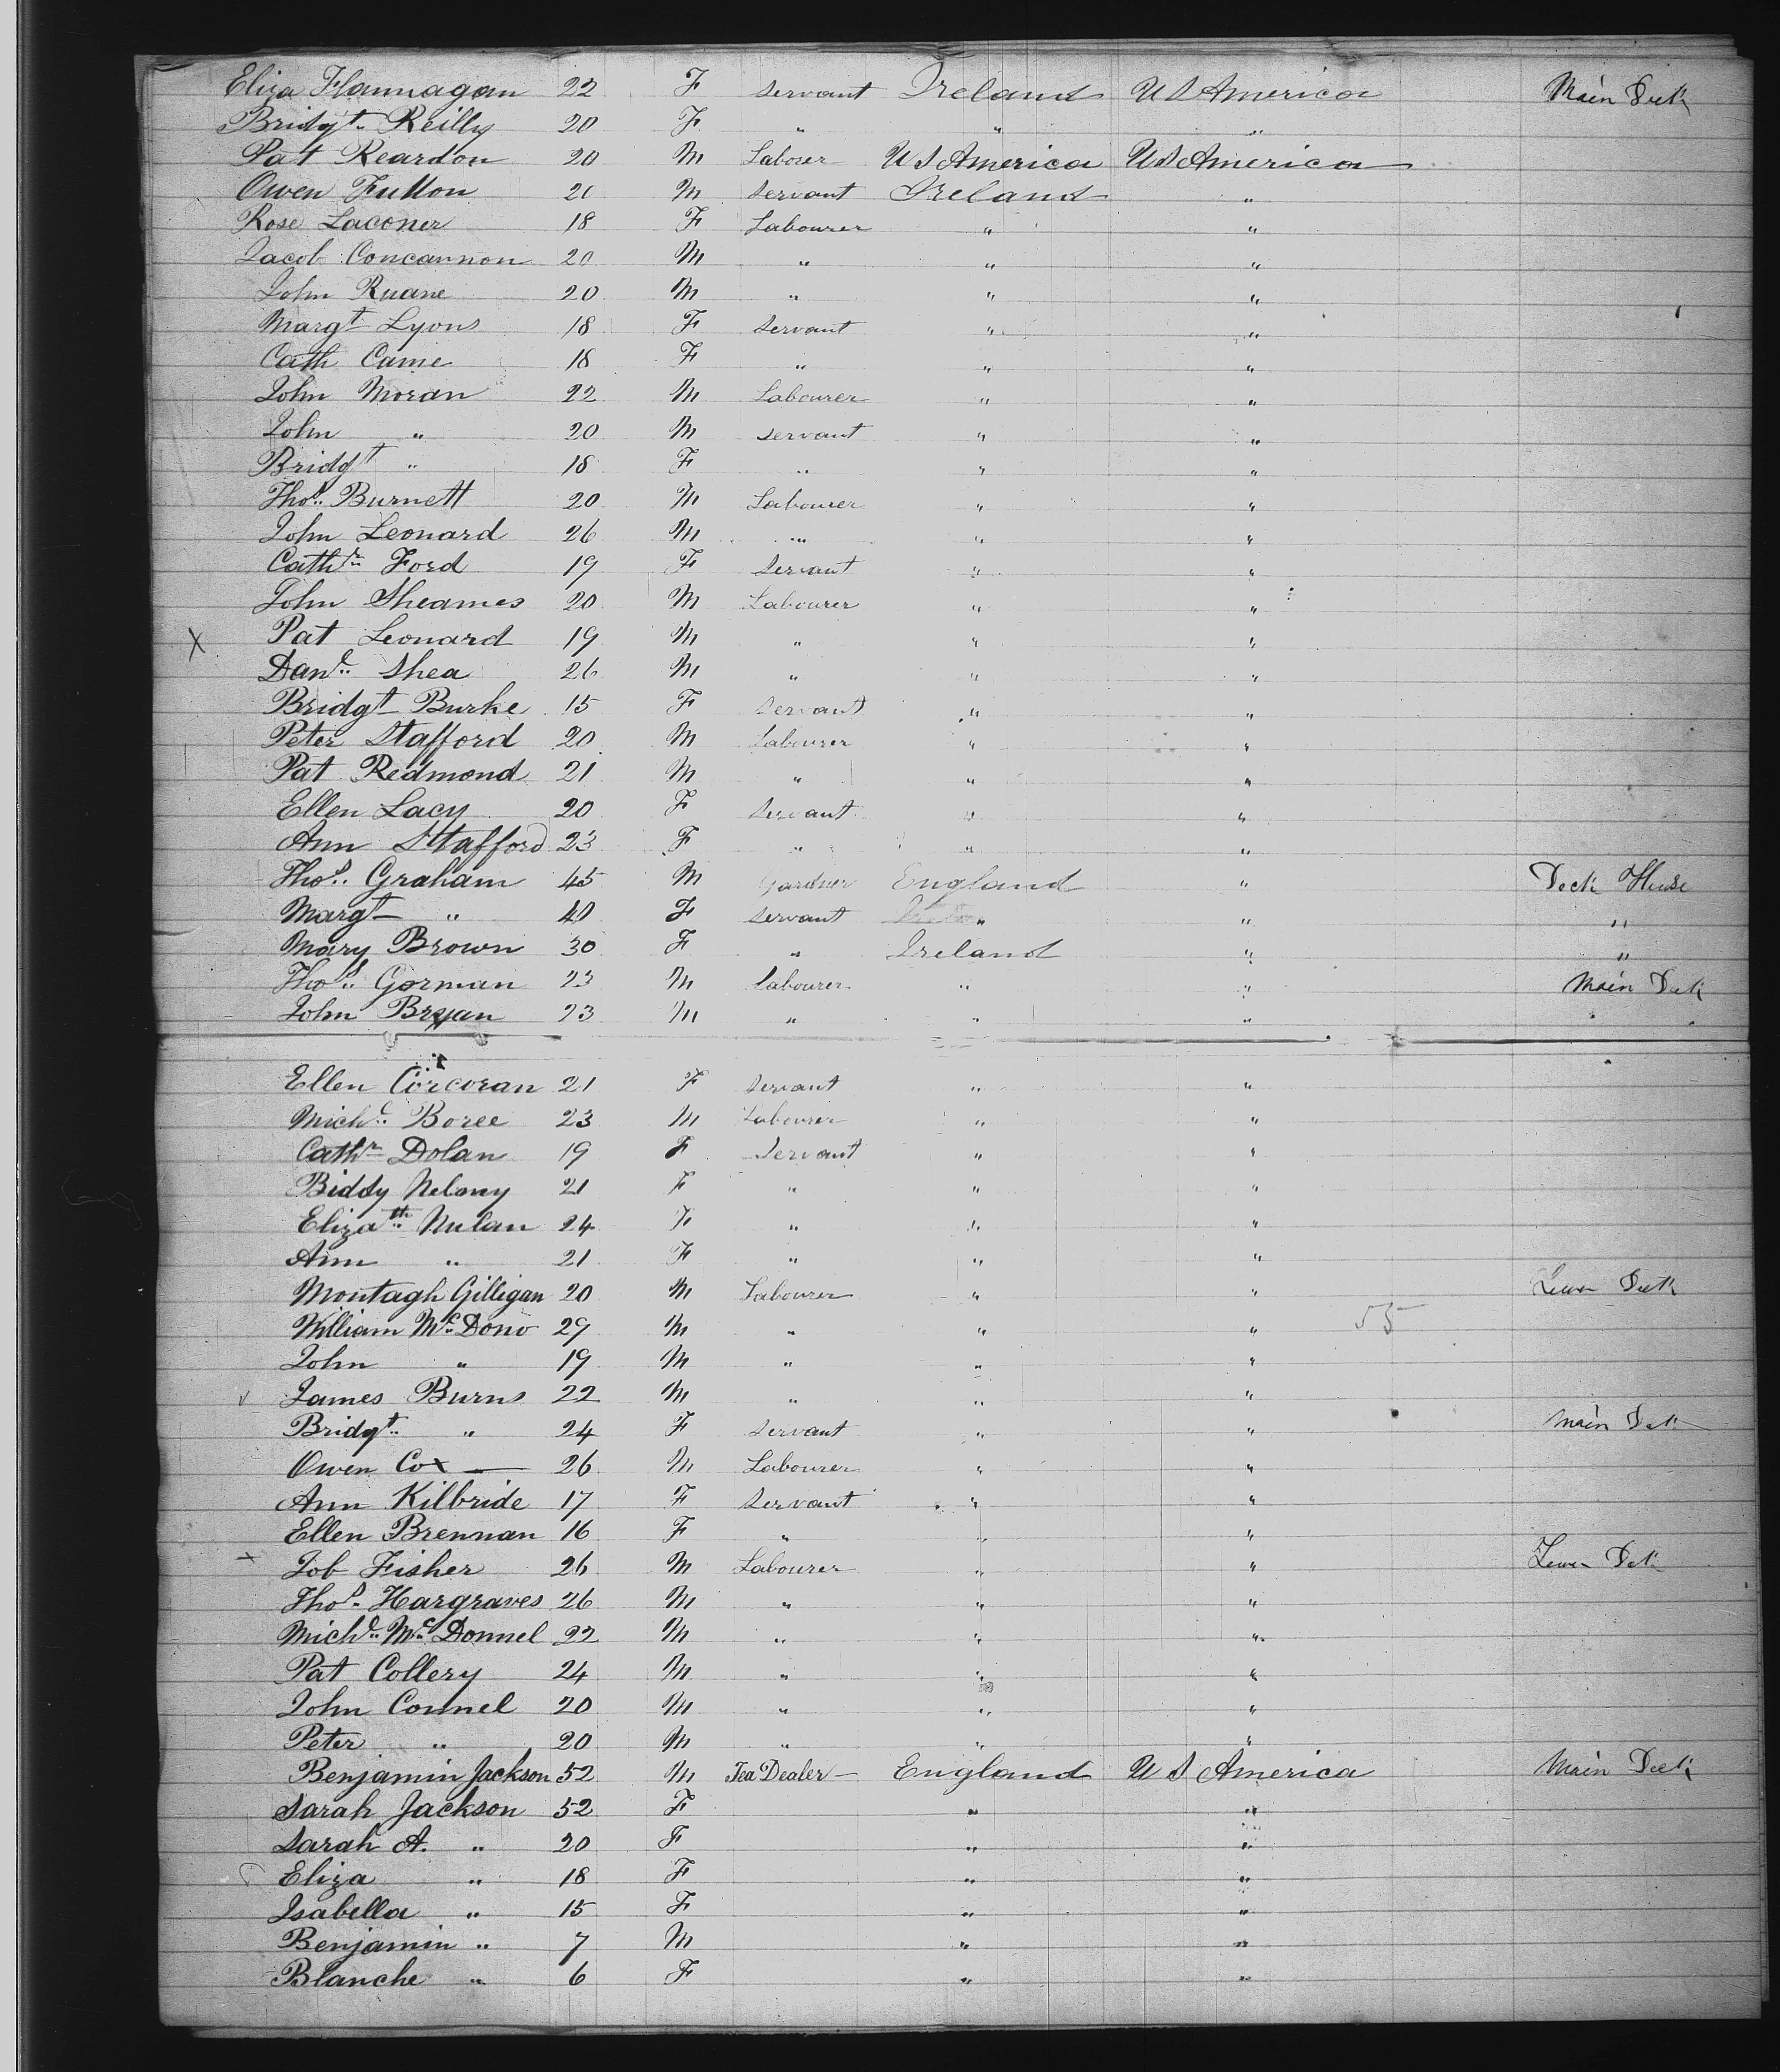 Eliza Flannagan 22 F Servant Ireland U S America Main Deck
Bridgt. Reilly 20 F " " "
Pat Reardon 20 M Labourer U S America U S America
Owen Fullon 20 M Servant Ireland "
Rose Laconer 18 F Labourer " "
Jacob Concannon 20 M " " "
John Ruane 20 M " " "
Margt Lyons 18 F Servant " "
Cath Came 18 F " " "
John Moran 22 M Labourer " "
John " 20 M Servant " "
Bridgt " 18 F " " "
Thos. Burnett 20 M Labourer " "
John Leonard 26 M " " "
Cathr Ford 19 F Servant " "
John Sheames 20 M Labourer " "
X Pat Leonard 19 M " " "
Danl. Shea 26 M " " "
Bridgt Burke 15 F Servant " "
Peter Stafford 20 M Labourer " "
Pat Redmond 21 M " " "
Ellen Lacy 20 F Servant " "
Ann Stafford 23 F " " "
Thos. Graham 45 M Gardner England " Deck House
Margt " 40 F Servant " " "
Mary Brown 30 F " Ireland " "
Thos. Gorman 23 M Labourer " " Main Deck
John Bryan 23 M " " "
Ellen Corcoran 21 F Servant " "
Michl. Boree 23 M Labourer " "
Cathr Dolan 19 F Servant " "
Biddy Nelony 21 F " " "
Elizath Nulan 24 F " " "
Ann " 21 F " " "
Montagh Gilligan 20 M Labourer " " Lower Deck
William McDono 29 M " " " 55
John " 19 M " " "
James Burns 22 M " " "
Bridgt. " 24 F Servant " " Main Deck
Owen Cox 26 M Labourer " "
Ann Kilbride 17 F Servant " "
Ellen Brennan 16 F " " "
x Job Fisher 26 M Labourer " " Lower Deck
Thos. Hargraves 26 M " " "
Michl. McDonnel 22 M " " "
Pat Collery 24 M " " "
John Connel 20 M " " "
Peter " 20 M " " "
Benjamin Jackson 52 M Tea Dealer England U S America Main Deck
Sarah Jackson 52 F " "
Sarah A. " 20 F " "
Eliza " 18 F " "
Isabella " 15 F " "
Benjamin " 7 M " "
Blanche " 6 F " "